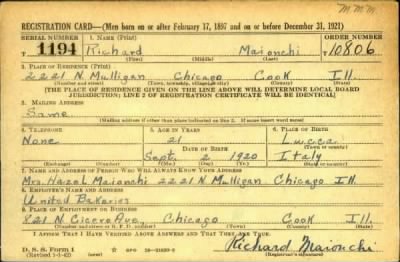 M M M
REGISTRATION CARD—(Men born on or after February 17, 1897 and on or before December 31, 1921)
SERIAL NUMBER 1. NAME (Print) ORDER NUMBER
T 1194 Richard Maionchi T 10806
(First) (Middle) (Last)
2. PLACE OF RESIDENCE (Print)
2221 N. Mulligan Chicago Cook Ill.
(Number and street) (Town, township, village, or city) (County) (State)
[THE PLACE OF RESIDENCE GIVEN ON THE LINE ABOVE WILL DETERMINE LOCAL BOARD
JURISDICTION; LINE 2 OF REGISTRATION CERTIFICATE WILL BE IDENTICAL]
3. MAILING ADDRESS
Same
[Mailing address if other than place indicated on line 2. If same insert word same]
4. TELEPHONE 5. AGE IN YEARS 6. PLACE OF BIRTH
None 21 Lucca
DATE OF BIRTH (Town or county)
Sept. 2 1920 Italy
(Exchange) (Number) (Mo.) (Day) (Yr.) (State or country)
7. NAME AND ADDRESS OF PERSON WHO WILL ALWAYS KNOW YOUR ADDRESS
Mrs. Hazel Maionchi 2221 N. Mulligan Chicago Ill.
8. EMPLOYER'S NAME AND ADDRESS
United Bakeries
9. PLACE OF EMPLOYMENT OR BUSINESS
N. Cicero Ave. Chicago Cook Ill
(Number and street or R. F. D. number) (Town) (County) (State)
I AFFIRM THAT I HAVE VERIFIED ABOVE ANSWERS AND THAT THEY ARE TRUE.
D. S. S. Form 1 GPO Richard Maionchi
(Revised 1-1-42) (over) (Registrant's signature)